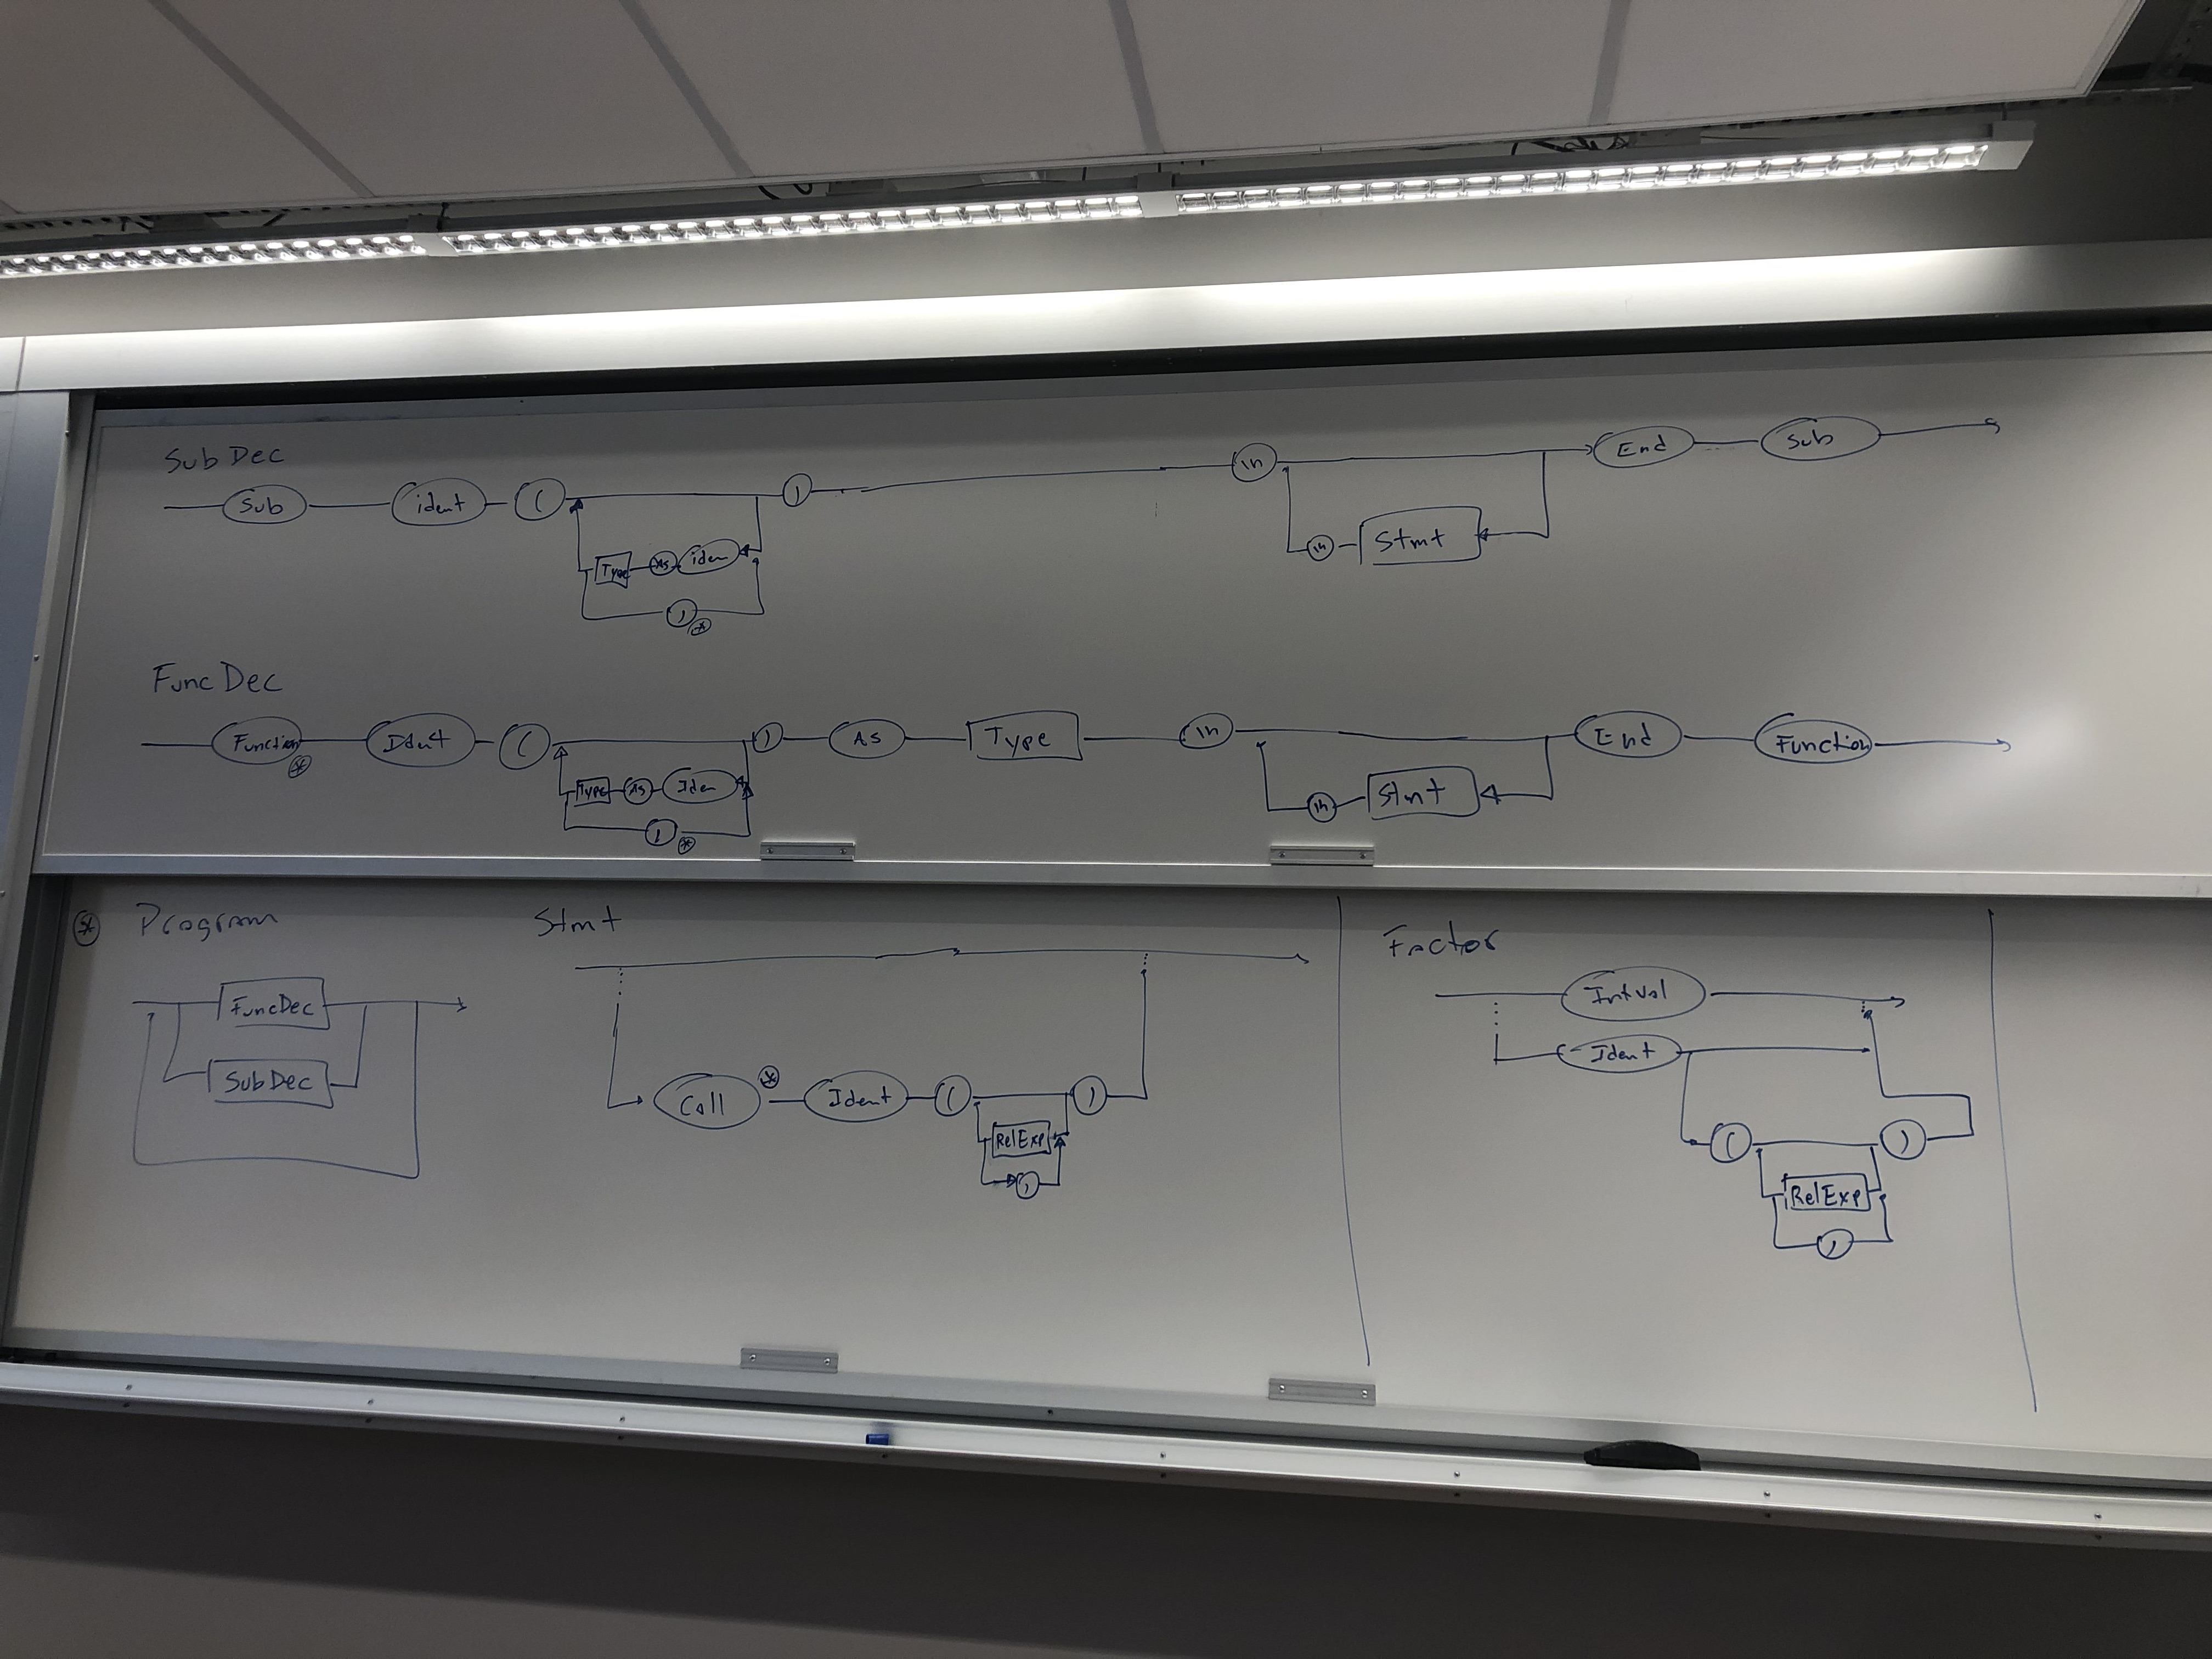 Sub Dec
Sub ident ( ) \n End Sub
Type As iden \n Stmt
, *
Func Dec
Function * Ident ( ) As Type \n End Function
Type As Iden \n Stmt
, *
* Program
FuncDec
SubDec
Stmt
Call * Ident ( )
RelExp
,
Factor
IntVal
Ident
( )
RelExp
,